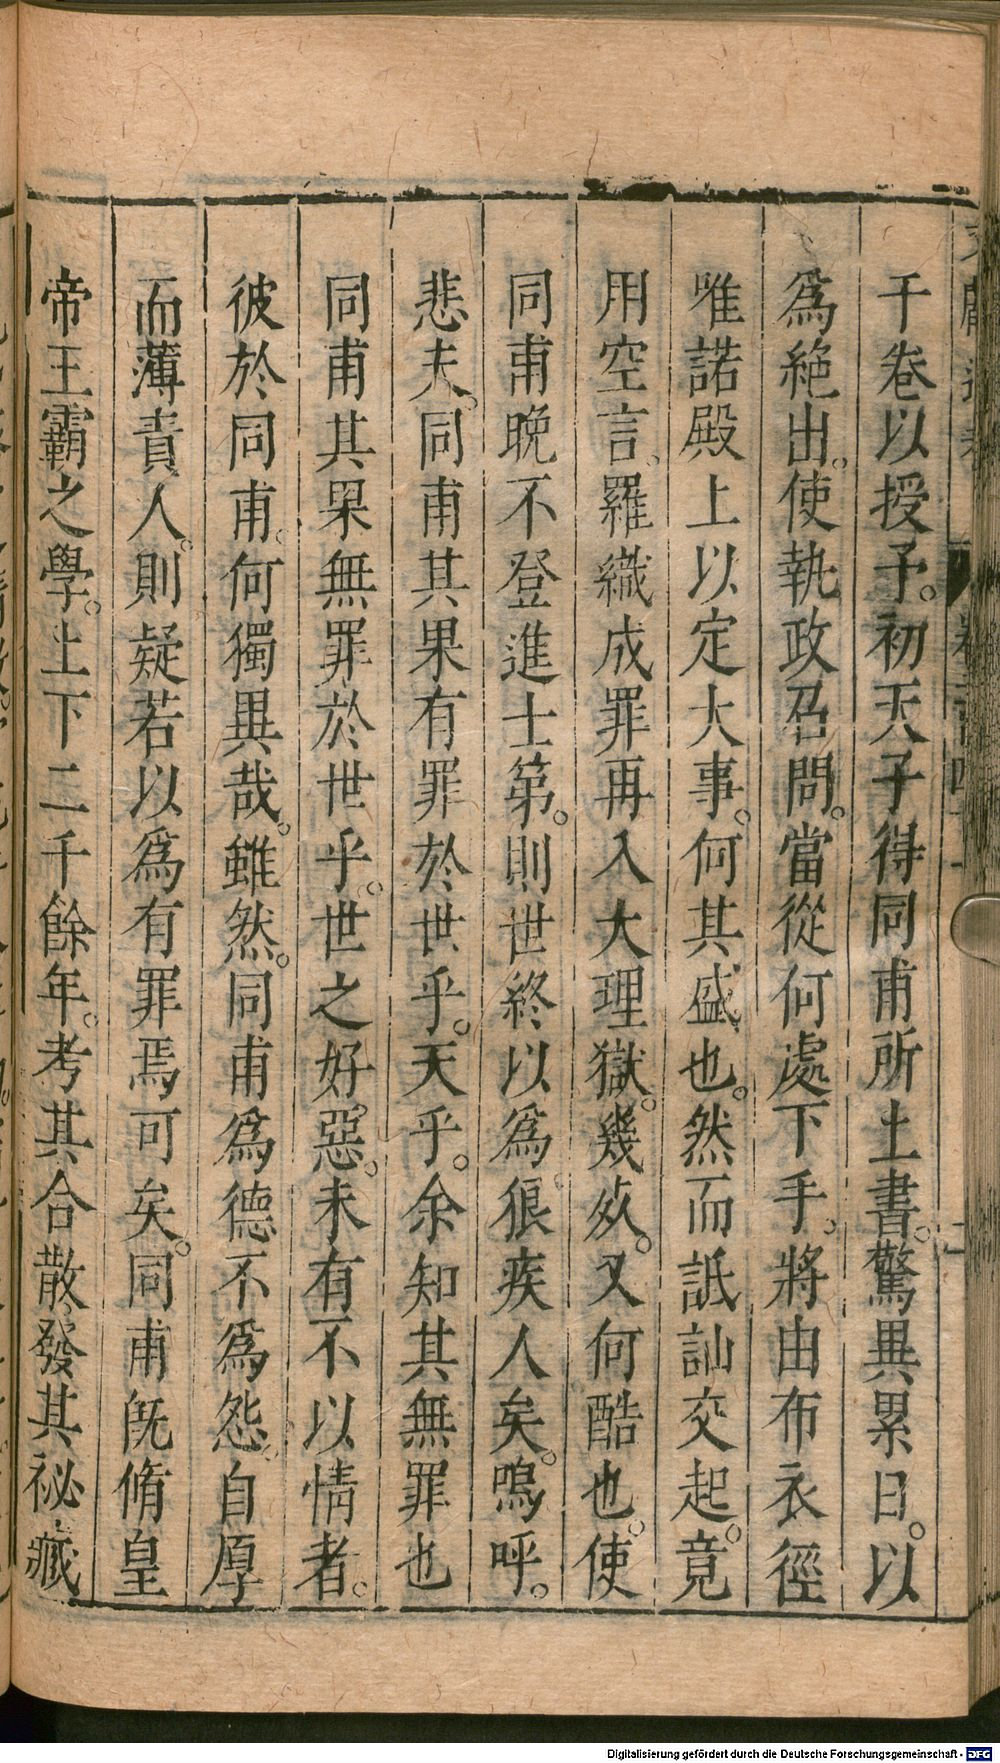 千卷以授予。初天子得同甫所上書。驚異累日。以
為絕出。使執政召問。當從何處下手。將由布衣徑
唯諾殿上以定大事。何其盛也。然而詆訕交起。竟
用空言。羅織成罪再入大理獄。幾死。又何酷也。使
同甫晚不登進士第。則世終以為狠疾人矣。嗚呼。
悲夫。同甫其果有罪於世乎。天乎。余知其無罪也
同甫其果無罪於世乎。世之好惡。未有不以情者。
彼於同甫。何獨異哉。雖然。同甫為德不為怨。自厚
而薄責人。則疑若以為有罪焉可矣。同甫既脩皇
帝王霸之學。上下二千餘年。考其合散。發其祕藏
Digitalisierung gefördert durch die Deutsche Forschungsgemeinschaft - DFG